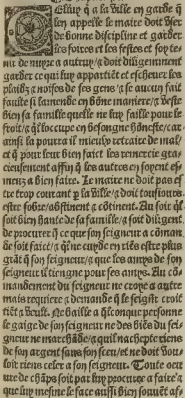 Celuy qui a la ville en garde q̃
len appelle le maire doit vser
de bonne discipline et garder
les foires et les festes et soy te-
nir de nuyre a autruy/ & doit diligemment
garder ce qui luy appartiẽt et escheuer les
plaidz & noises de ses gens/ & se aucun fait
faulte si lamende en bõne maniere/ & veste
bien sa famille quelle ne luy faille pour le
froit/ & q̃l loccupe en besongne hõneste/ car
ainsi la pourra il mieulx retraire de mal/
et q̃ pour leur bien faict les remercie gra-
cieusement affin q̃ les autres en soyent es-
meuz a bien faire. Le maire ne doit pas es
tre trop courant p̃ la ville/ & doit tousiours
estre sobre/ abstinent & cõtinent. Au soir q̃l
soit bien hante de sa famille/ & soit diligent
de procurer q̃ ce que son seigneur a cõman
de soit faict/ & q̃l ne cuyde en riẽs estre plus
grãt q̃ son seigneur/ & que les amys de son
seigneur il tiengne pour ses amys. Au cõ-
mandement du seigneur ne croye a autre
mais requiere & demande q̃ le seigñr croit
ciẽt & veult. Ne baille a q̃lconque personne
le gaige de son seigneur ne des biẽs du sei-
gneur ne marchãde/ & q̃l nachepte riens
de son argent sans son sceu/ et ne doit vou
loir riens celer a son seigneur. Toute oeu
ure de chãps soit par luy procuree a faire/ &
que luy mesme le face aussi bien souuẽt af-